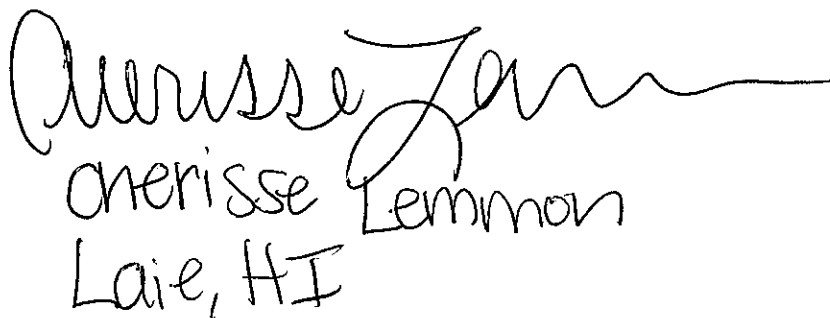 Cherisse Lem
Cherisse Lemmon
Laie, HI